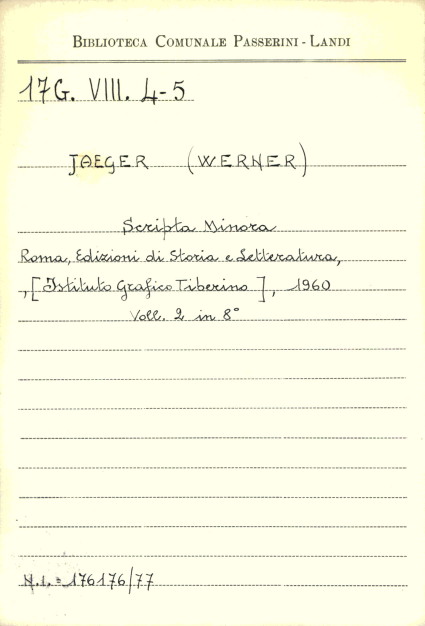 BIBLIOTECA COMUNALE PASSERINI - LANDI
17G. VIII. 4-5
JAEGER (WERNER)
Scripta Minora
Roma, Edizioni di Storia e Letteratura,
, [Istituto Grafico Tiberino], 1960
Voll. 2 in 8°
N.I. = 176176/77